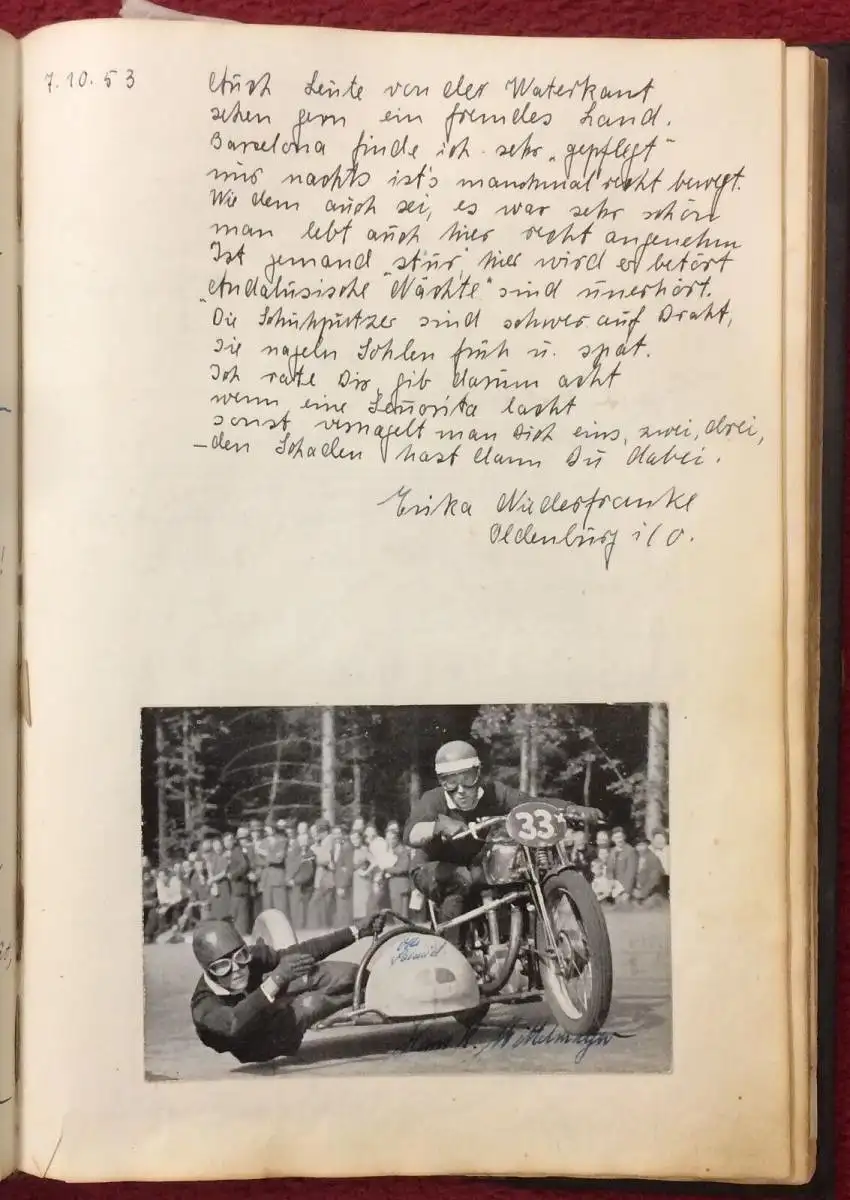 7.10.53
Auch Leute von der Waterkant
sehen gern ein fremdes Land.
Barzelona finde ich sehr „gepflegt“
nur nachts ist's manchmal recht bewegt.
Wie dem auch sei, es war sehr schön
man lebt auch hier recht angenehm
Ist jemand stur, hier wird er betört
„Andalusische Nächte“ sind unerhört.
Die Schuhputzer sind schwer auf Draht,
sie nageln Sohlen früh u. spät.
Ich rate Dir, gib darum acht
wenn eine Señorita lacht
sonst vernagelt man Dich eins, zwei, drei,
– den Schaden hast dann Du dabei.
Erika Niederfranke
Oldenburg i/O.
33
Wittelmayer